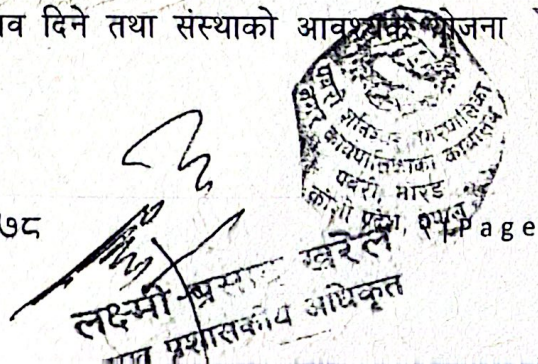 व दिने तथा संस्थाको आवश्यक योजना
नगर कार्यपालिकाको कार्यालय
पथरी, मोरङ
कोशी प्रदेश, नेपाल
७८
Page
लक्ष्मी प्रसाद खरेल
प्रशासकीय अधिकृत